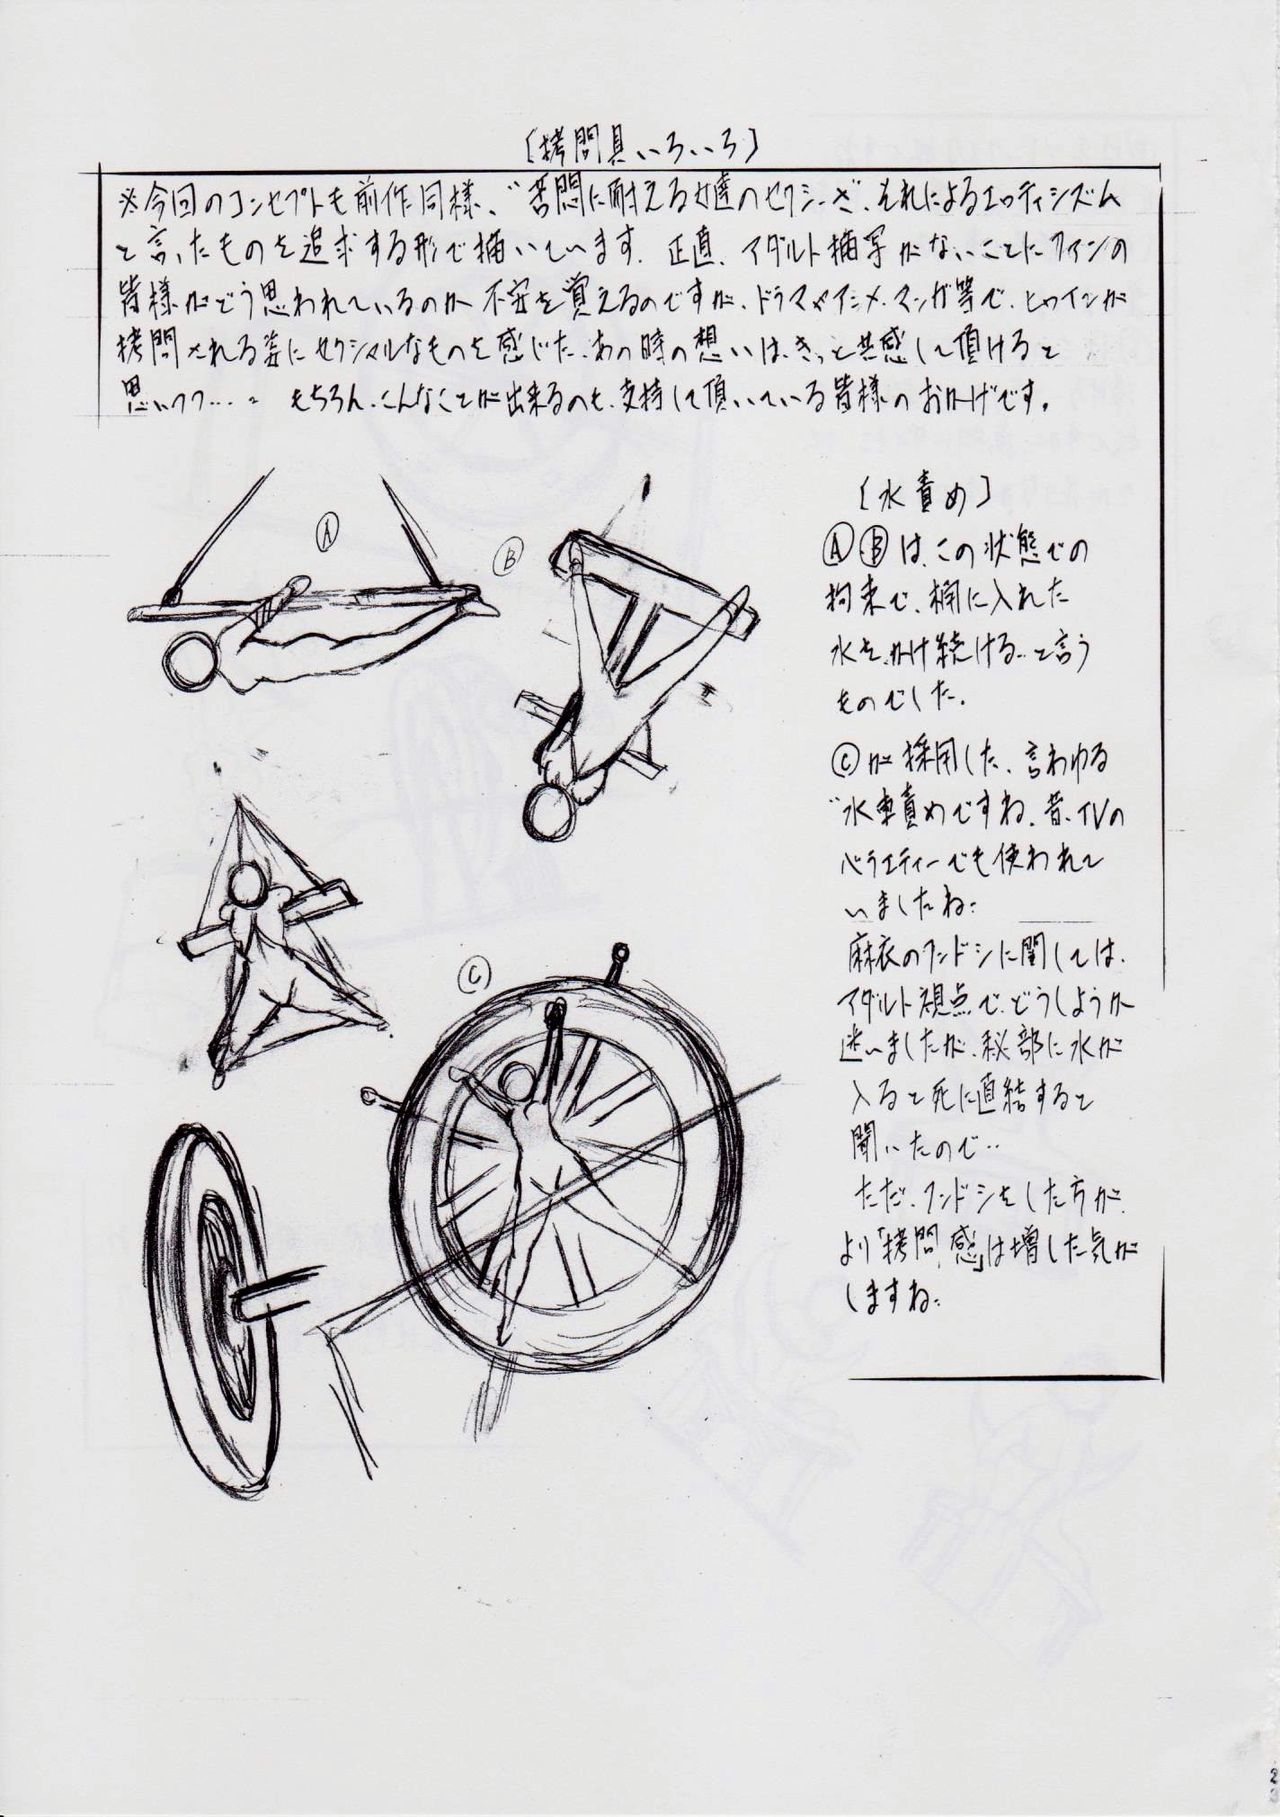 〔拷問具いろいろ〕
※今回のコンセプトも前作同様、“苦悶に耐える女達のセクシーさ、それによるエロティシズム
と言ったものを追求する形で描いています。正直、アダルト描写がないことにファンの
皆様がどう思われているのか不安を覚えるのですが、ドラマやアニメ、マンガ等で、ヒロインが
拷問される姿にセクシャルなものを感じた、あの時の想いは、きっと共感して頂けると
思いつつ…。もちろん、こんなことが出来るのも、支持して頂いている皆様のおかげです。
〔水責め〕
Ⓐ
Ⓑ
ⒶⒷは、この状態での
拘束で、桶に入れた
水を、かけ続ける…と言う
ものでした。
Ⓒが採用した、言わゆる
“水車責めですね、昔、TVの
バラエティーでも使われて
いましたね…
Ⓒ
麻衣のフンドシに関しては、
アダルト視点で、どうしようか
迷いましたが、秘部に水が
入ると死に直結すると
聞いたので…
ただ、フンドシをした方が、
より「拷問感」は増した気が
しますね…